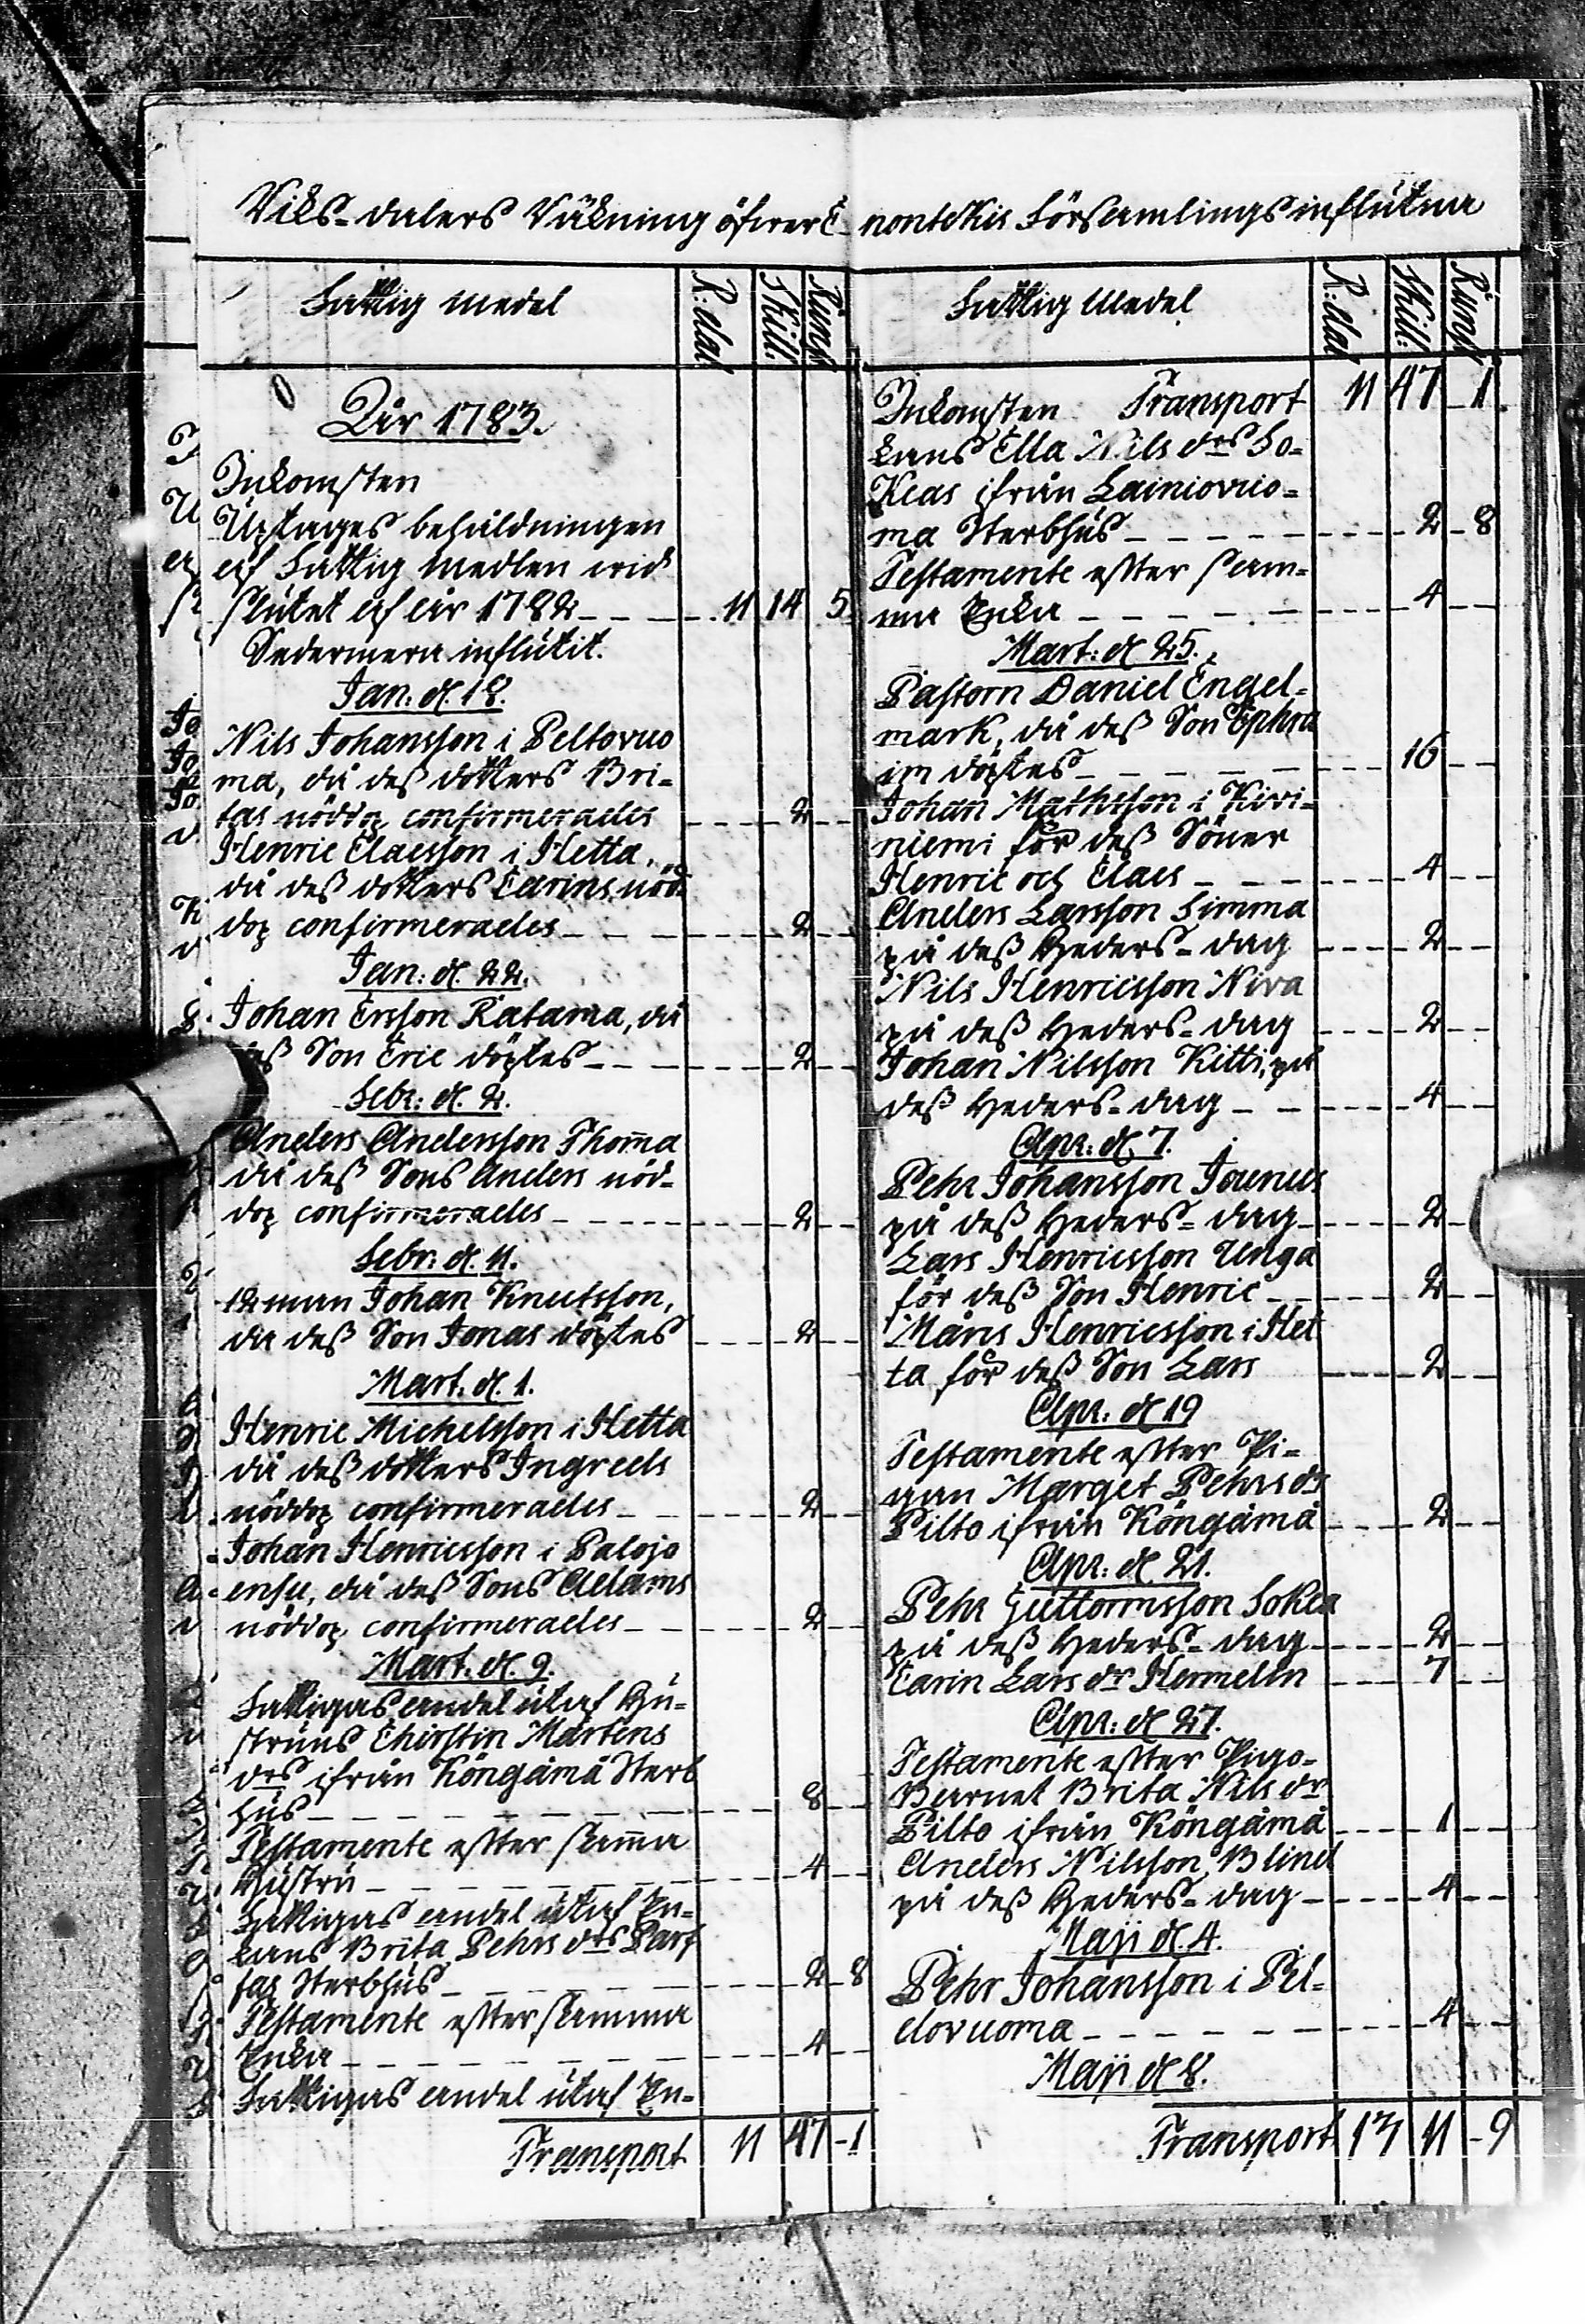 Riks-dalers Räkning öfver E-nontekis Församlings influtna
Fattig medel R:dal Skill: Runst
År 1783.
Inkomsten
Uptages behåldningen
af Fattig medlen vid
slutet af år 1782 11 14 5
Sedermera influtit.
Jan. d. 18.
Nils Johansson i Peltovuo
ma, då deß dotters Bri-
tas nöddop confirmerades 2
Henric Claesson i Hetta,
då deß dotters Carins nöd-
dop confirmerades 2
Jan: d. 22.
Johan Ersson Ratama, då
deß Son Eric döptes 2
Febr: d. 2.
Anders Andersson Thomma
då deß Sons Anders nöd-
dop confirmerades 2
Febr: d. 11.
12 man Johan Knutsson,
då deß Son Jonas döptes 2
Mart. d. 1.
Henric Michelsson i Hetta
då deß dotters Ingreds
nöddop confirmerades 2
Johan Henricsson i Palojo
ensu, då deß Sons Adams
nöddop confirmerades 2
Mart. d. 9.
Fattigas andel utaf Hu-
struns Chirstin Mårtens
drs ifrån Köngämä Sterb
hus 8
Testamente efter samma
Hustru 4
Fattigas andel utaf En-
kans Brita Pehrs drs Parf
fas Sterbhus 2 8
Testamente efter samma
Enka 4
Fattigas andel utaf En-
Transport 11 47 1
Fattig Medel R:dal Skill: Runst
Inkomsten Transport 11 47 1
kans Ella Nils drs Fo-
Keas ifrån Lainiovuo-
ma Sterbhus 2 8
Testamente efter sam-
ma Enka 4
Mart: d. 25.
Pastorn Daniel Engel-
mark, då deß Son Ephra
im döptes 16
Johan Mathsson i Kivi-
niemi för deß Söner
Henric och Claes 4
Anders Larsson Simma
på deß Heders-dag 2
Nils Henricsson Niva
på deß Heders-dag 2
Johan Nilsson Kitti, på
deß Heders-dag 4
Apr: d. 7.
Pehr Johansson Jounus
på deß Heders-dag 2
Lars Henricsson Unga
för deß Son Henric 2
Måns Henricsson i Het
ta för deß Son Lars 2
Apr: d 19
Testamente efter Pi-
gan Marget Pehrs dr
Pilto ifrån Köngämä 2
Apr: d. 21.
Pehr Guttormsson Fokea
på deß Heders-dag 2
Carin Lars dr Hermelin 7
Apr: d 27.
Testamente efter Pigo-
Barnet Brita Nils dr
Pilto ifrån Köngämä 1
Anders Nilsson Blind
på deß Heders-dag 4
Maji d. 4.
Pehr Johansson i Pel-
dovuoma 4
Maji d 8.
Transport 13 11 9